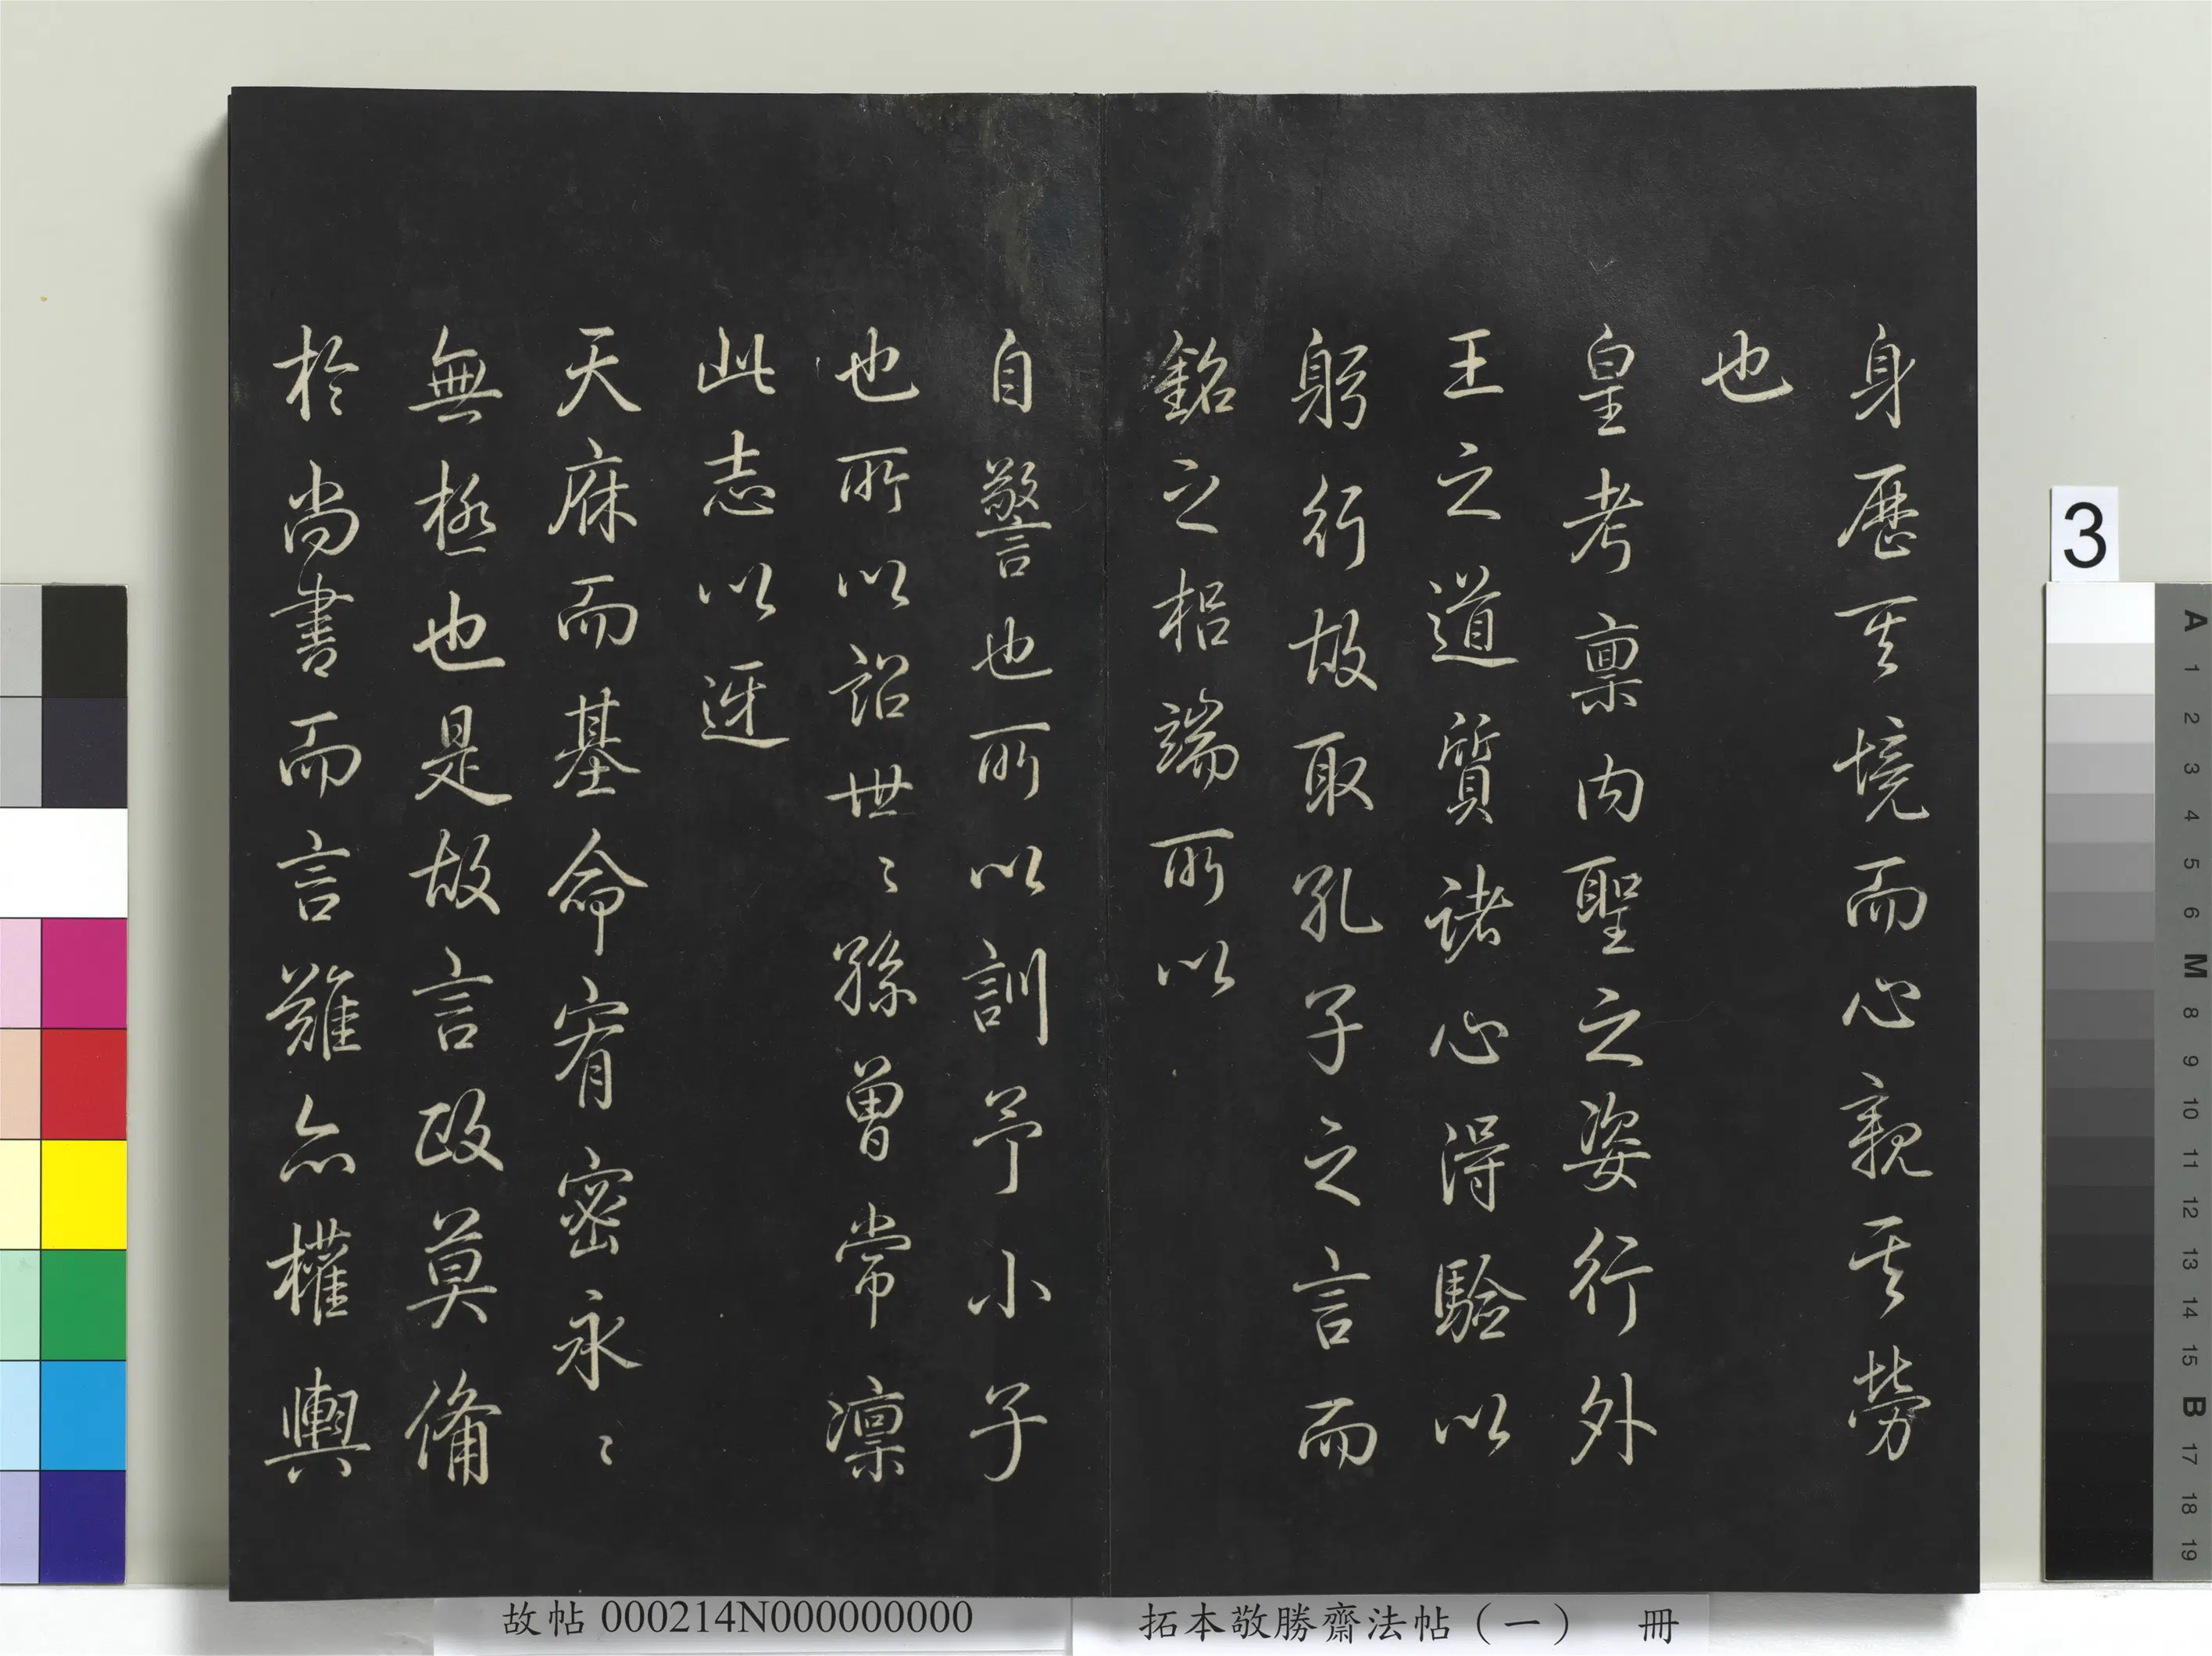 身歷其境而心親其勞
也
皇考稟內聖之姿行外
王之道質諸心得驗以
躬行故取孔子之言而
銘之梠端所以
自警也所以訓予小子
也所以詔世〻孫曾常凜
此志以迓
天庥而基命宥密永〻
無極也是故言政莫備
於尚書而言難亦權輿
故帖 000214N000000000
拓本敬勝齋法帖（一） 冊
3
A
1
2
3
4
5
6
M
8
9
10
11
12
13
14
15
B
17
18
19